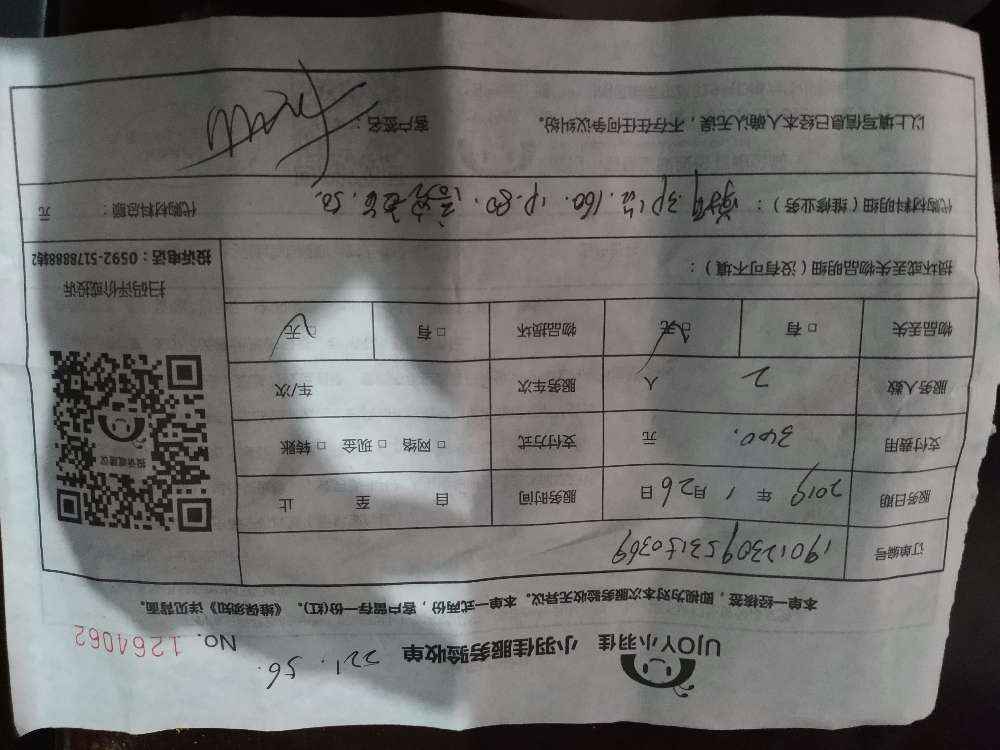 UJOY小羽佳 小羽佳服务验收单 NO. 1264062
221.56.
本单一经核签，即视为对本次服务验收无异议。本单一式两份，客户留存一份(红)。《维保须知》详见背面。
订单编号 1901230953150369
服务日期 2019 年 1 月 26 日 服务时间 自 至 止
支付费用 340. 元 支付方式 □ 网络 □ 现金 □ 转账
服务人数 2 人 服务车次 车/次
物品丢失 □ 有 □ 无 物品损坏 □ 有 □ 无
投诉或建议
扫码评价或投诉
投诉电话：0592-5178888转2
损坏或丢失物品明细（没有可不填）：
代购材料明细（维修业务）： 3P 160. 1P.80. 50. 代购材料总额： 元
以上填写信息已经本人确认无误，不存在任何争议纠纷。 客户签名：